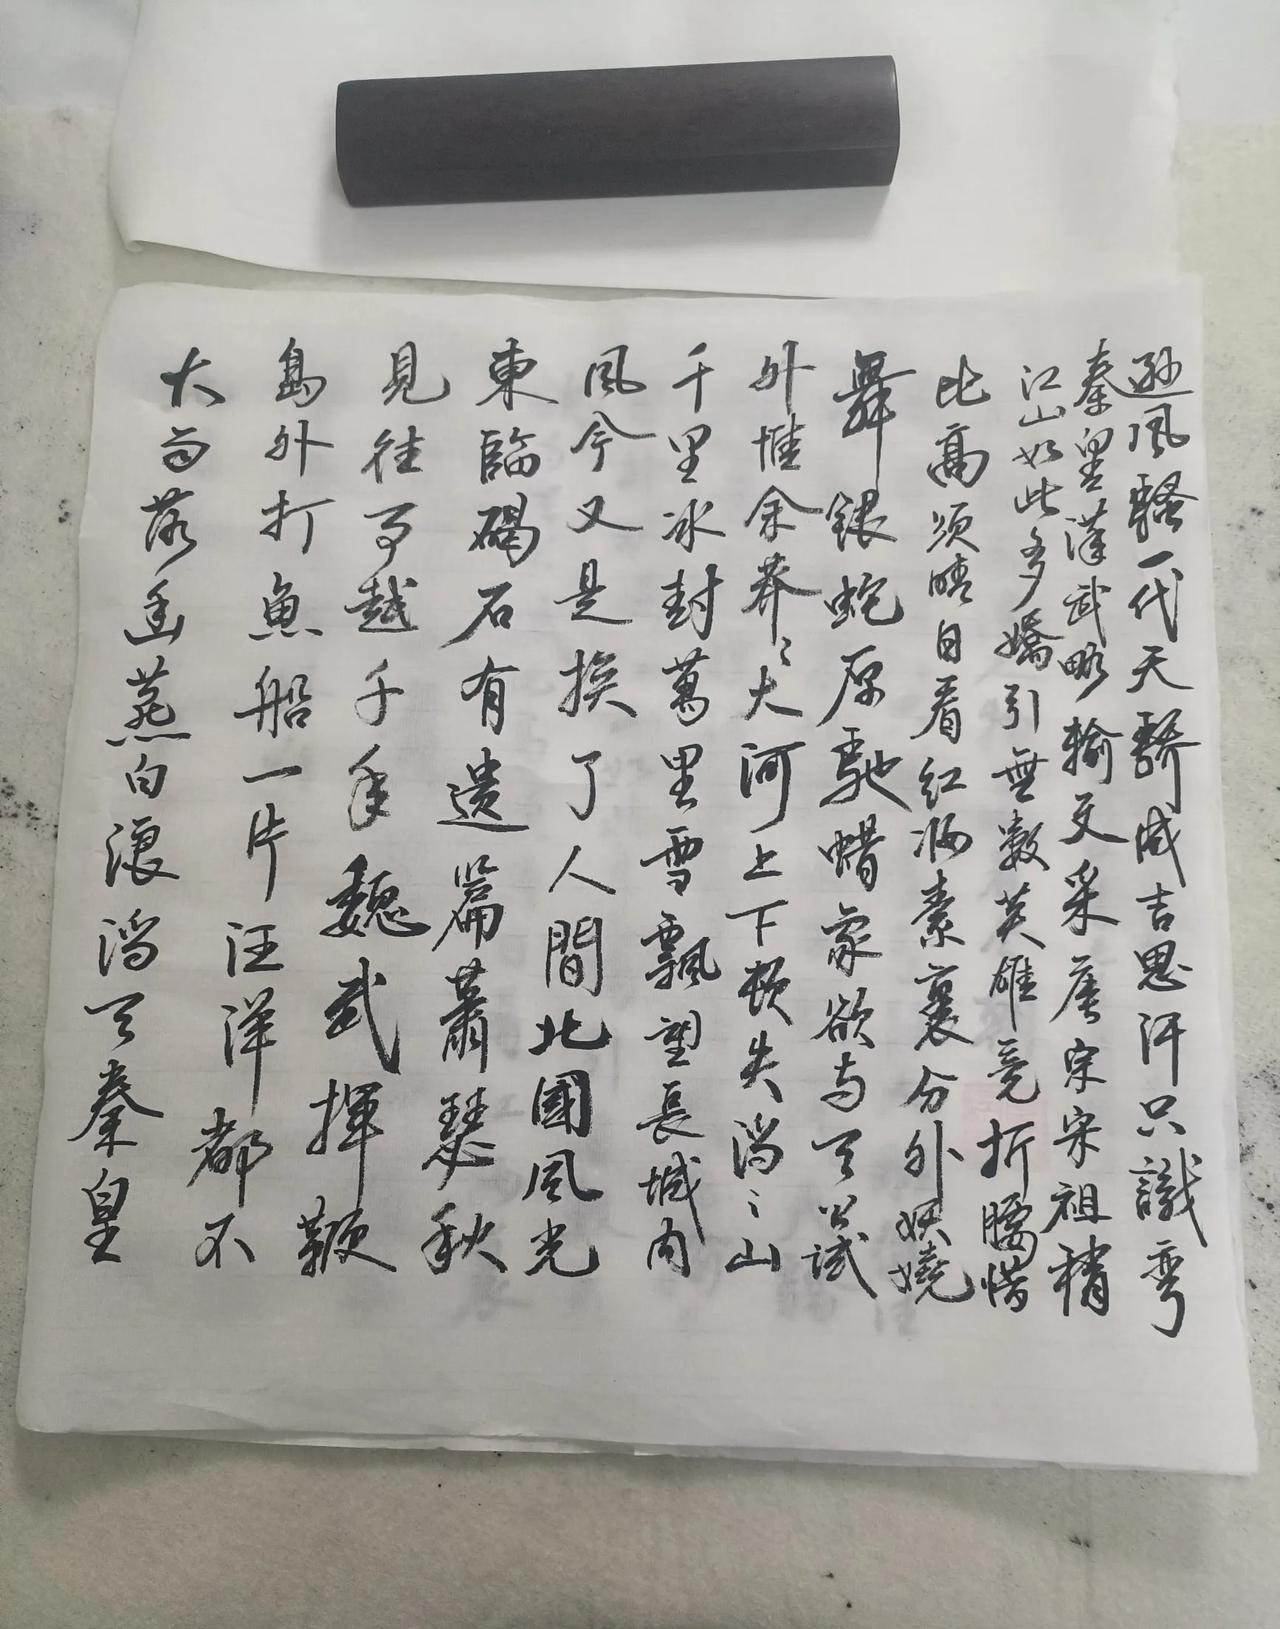 大雨落幽燕白浪滔天秦皇
島外打魚船一片汪洋都不
見往事越千年魏武揮鞭
東臨碣石有遺篇蕭瑟秋
風今又是换了人間北國風光
千里冰封萬里雪飄望長城内
外惟余莽々大河上下頓失滔々山
舞銀蛇原馳蜡象欲与天公試
比高須晴日看紅妝素裹分外妖嬈
江山如此多嬌引無數英雄竞折腰惜
秦皇漢武略輸文采唐宗宋祖稍
遜風騷一代天驕成吉思汗只識彎